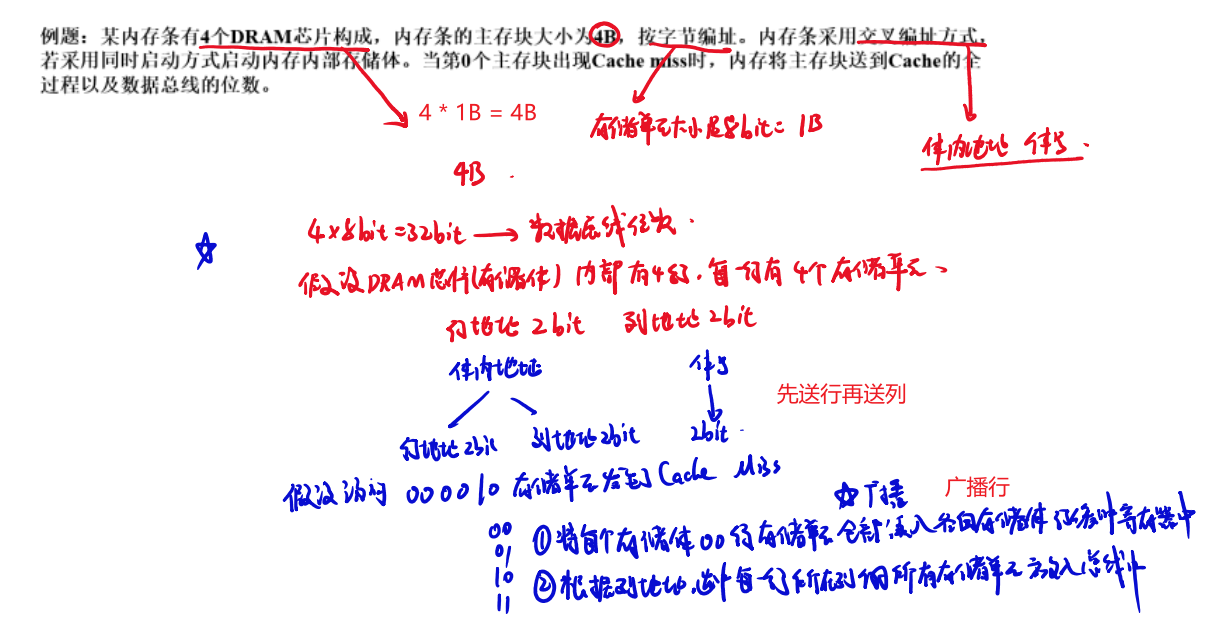 例题：某内存条有4个DRAM芯片构成，内存条的主存块大小为4B，按字节编址。内存条采用交叉编址方式，
若采用同时启动方式启动内存内部存储体。当第0个主存块出现Cache miss时，内存将主存块送到Cache的全
过程以及数据总线的位数。
4 * 1B = 4B
存储单元大小是8bit = 1B
体内地址 体号.
4B
4×8bit=32bit → 数据总线位数.
假设DRAM芯片(存储体)内部有4行,每一行有4个存储单元、
行地址 2bit 列地址 2bit
体内地址 体号
先送行再送列
行地址2bit 列地址2bit 2bit.
假设访问 000010 存储单元发生了Cache Miss
☆广播 广播行
00 ①将每个存储体00行存储单元全部送入各自存储体行缓冲寄存器中
01
10 ②根据列地址,每一行所在列所有存储单元入总线中
11